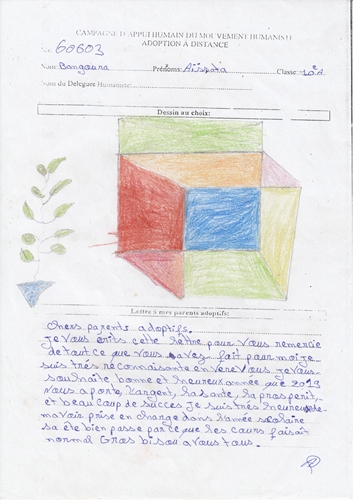 CAMPAGNE D'APPUI HUMAIN DU MOUVEMENT HUMANISTE
ADOPTION A DISTANCE
60603
Nom: Bangoura Prénoms: Aïssata Classe: 10e A
Nom du Délégué Humaniste:
Dessin au choix:
Lettre à mes parents adoptifs:
Chers parents adoptifs.
Je vous écrits cette lettre pour vous remercie
de tout ce que vous avez fait pour moi je
suis très reconaissante envere vous je vous
souhaite bonne et heureux annee que 2013
vous aporte, l'argent, la sante, la prosperit,
et beau coup de succes je suis très heureuse de
ma voir prise en change dans l'année scolaire
sa été bien passe parce que les cours faisait
normal Gros bisou a vous tous.